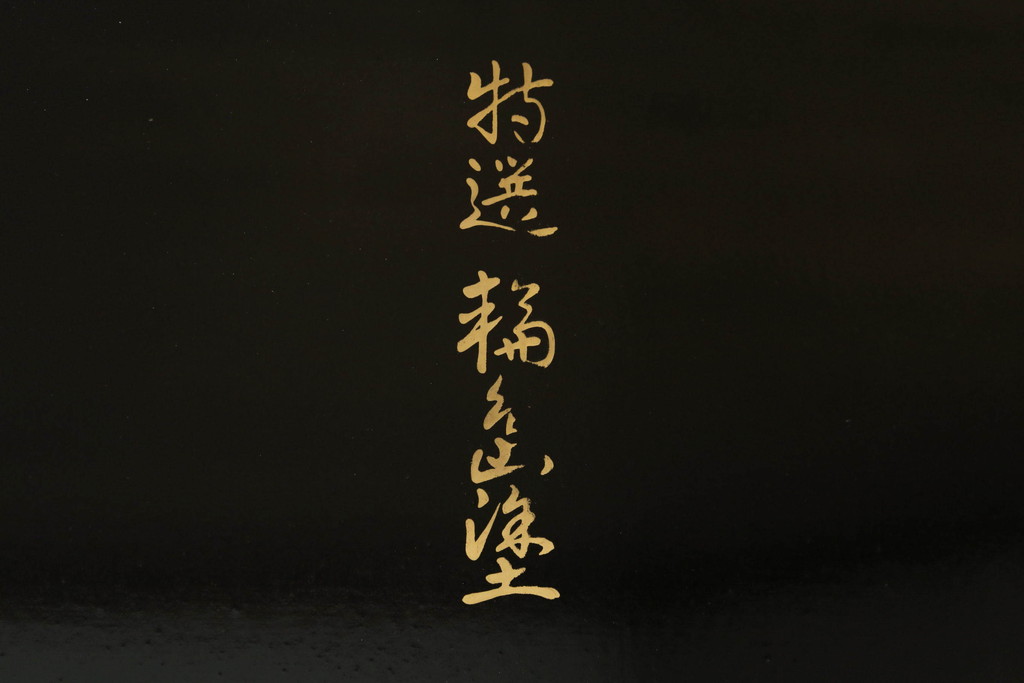 特選 輪島塗